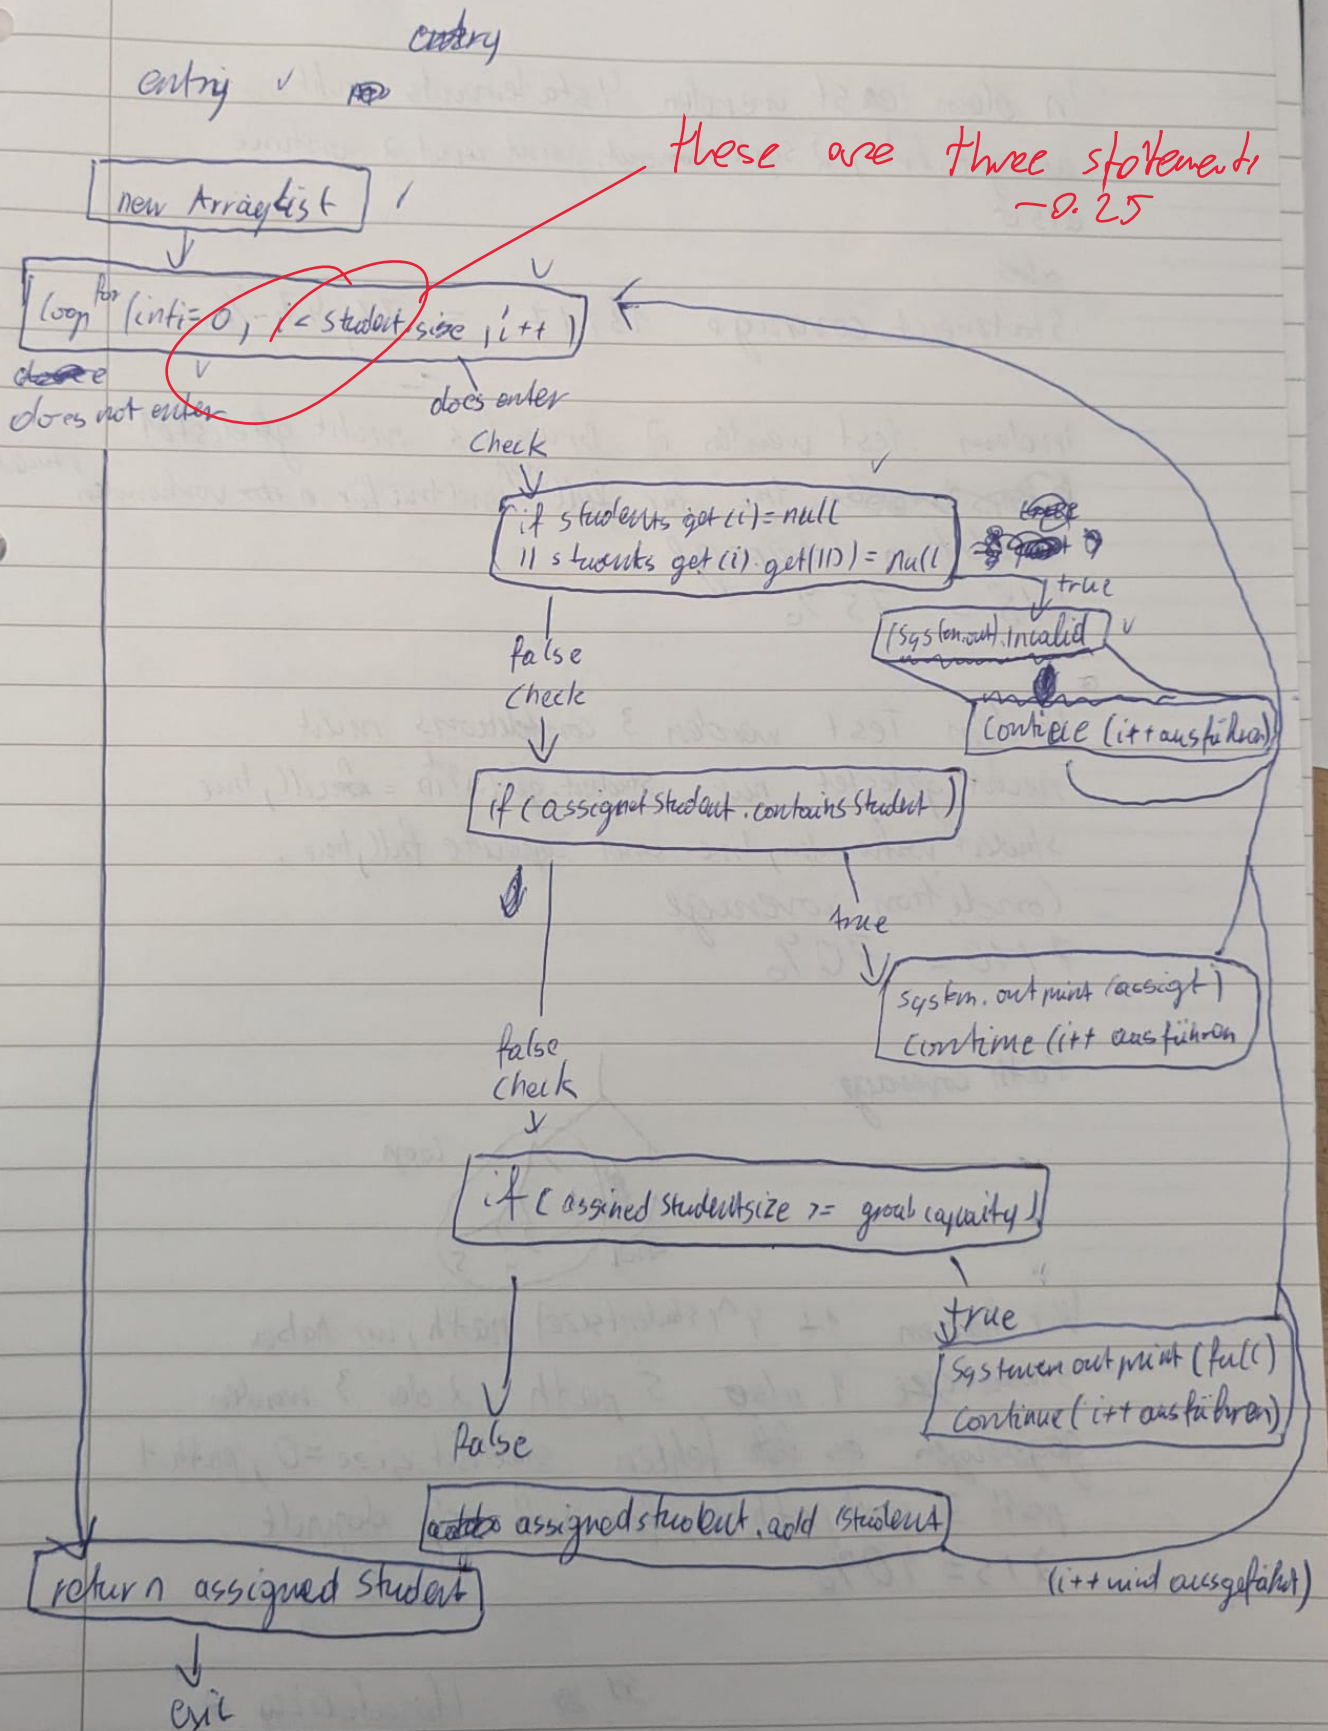 entry
entry
these are three statements
-0.25
new ArrayList
loop for (int i=0, i < student.size, i++)
does not enter
does enter
Check
if students get(i)=null
|| stuents get(i).get(ID)=null
true
(System.out).invalid
false
Check
(i++ausführen)
if (assignet student.contains student)
true
system.out print (assigt)
continue (i++ ausführen
false
Check
if (assined studentsize >= group capacity)
true
System out print (full)
continue (i++ausführen)
false
assigned student.add (student)
(i++ wird ausgeführt)
return assigned student
exit